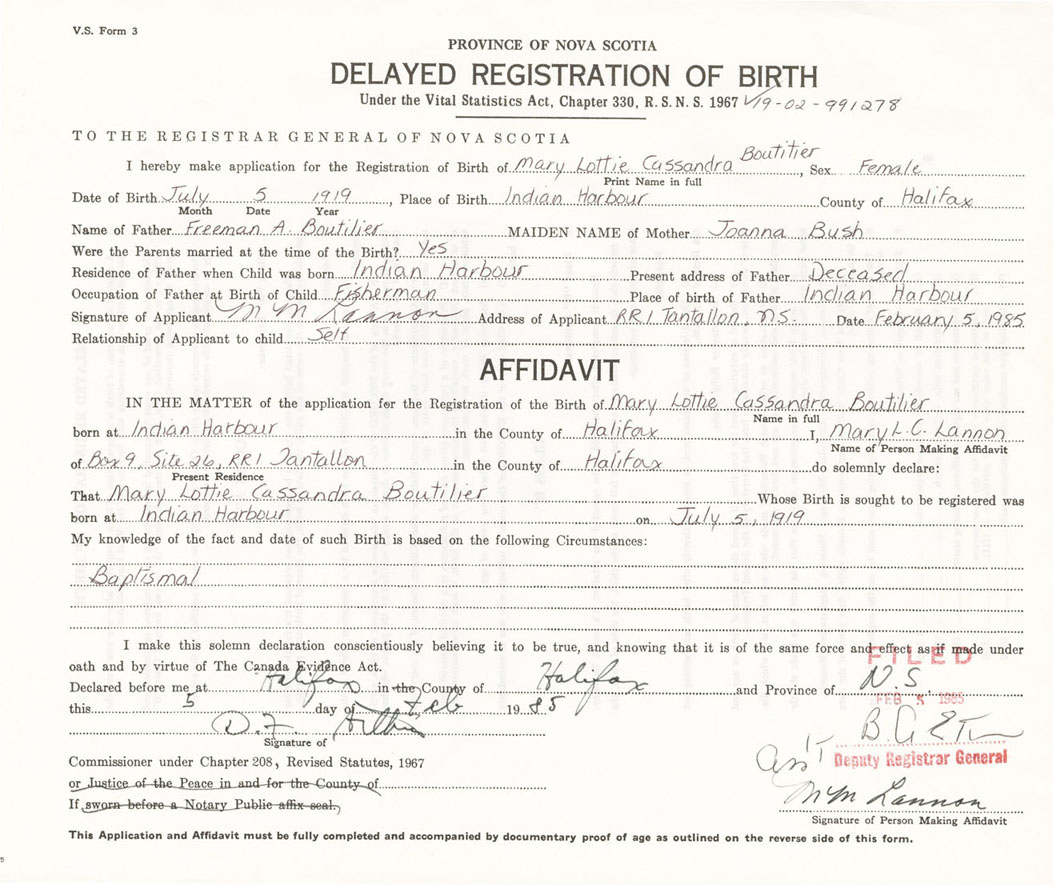 V.S. Form 3
PROVINCE OF NOVA SCOTIA
DELAYED REGISTRATION OF BIRTH
Under the Vital Statistics Act, Chapter 330, R.S.N.S. 1967 19-02-991278
TO THE REGISTRAR GENERAL OF NOVA SCOTIA
I hereby make application for the Registration of Birth of Mary Lottie Cassandra Boutilier, Sex Female
Print Name in full
Date of Birth July 5 1919, Place of Birth Indian Harbour County of Halifax
Month Date Year
Name of Father Freeman A. Boutilier MAIDEN NAME of Mother Joanna Bush
Were the Parents married at the time of the Birth? Yes
Residence of Father when Child was born Indian Harbour Present address of Father Deceased
Occupation of Father at Birth of Child Fisherman Place of birth of Father Indian Harbour
Signature of Applicant M M Lannon Address of Applicant RR1 Tantallon, N.S. Date February 5, 1985
Relationship of Applicant to child Self
AFFIDAVIT
IN THE MATTER of the application for the Registration of the Birth of Mary Lottie Cassandra Boutilier
Name in full
born at Indian Harbour in the County of Halifax I, Mary L. C. Lannon
Name of Person Making Affidavit
of Box 9, Site 26, RR1 Tantallon in the County of Halifax do solemnly declare:
Present Residence
That Mary Lottie Cassandra Boutilier Whose Birth is sought to be registered was
born at Indian Harbour on July 5, 1919
My knowledge of the fact and date of such Birth is based on the following Circumstances:
Baptismal
I make this solemn declaration conscientiously believing it to be true, and knowing that it is of the same force and effect as if made under
FILED
oath and by virtue of The Canada Evidence Act.
Declared before me at Halifax in the County of Halifax and Province of N.S.
this 5 day of Feb 1985
FEB 5 1985
D. F.
Signature of
Commissioner under Chapter 208, Revised Statutes, 1967
Ass't Deputy Registrar General
or Justice of the Peace in and for the County of
If sworn before a Notary Public affix seal.
M M Lannon
Signature of Person Making Affidavit
This Application and Affidavit must be fully completed and accompanied by documentary proof of age as outlined on the reverse side of this form.
5